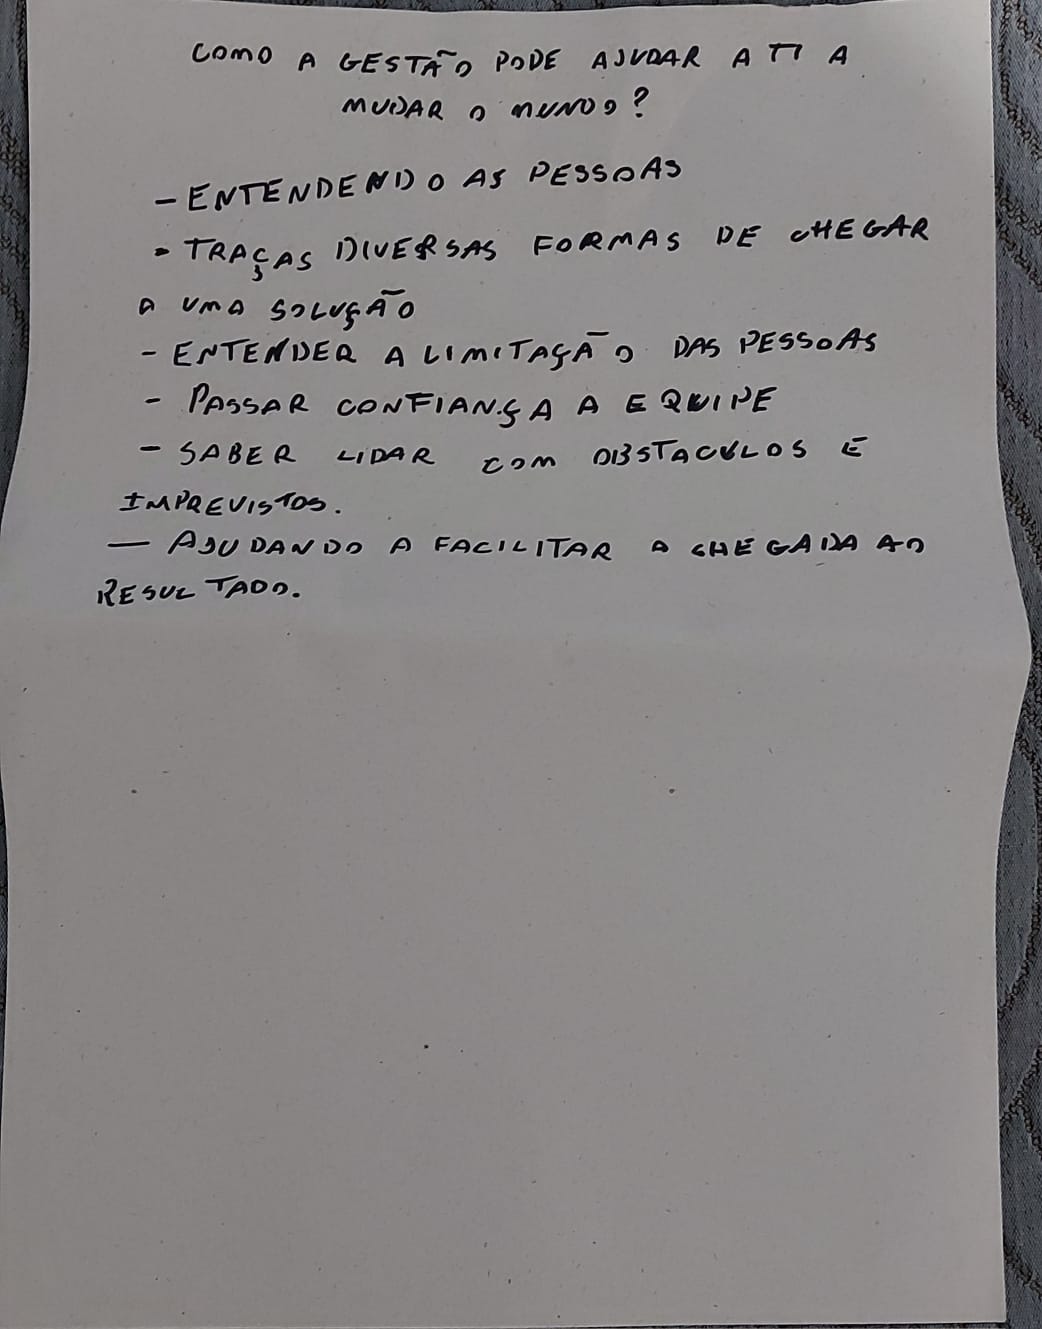 COMO A GESTÃO PODE AJUDAR A TI A
MUDAR O MUNDO?
- ENTENDENDO AS PESSOAS
- TRAÇAS DIVERSAS FORMAS DE CHEGAR
A UMA SOLUÇÃO
- ENTENDER A LIMITAÇÃO DAS PESSOAS
- PASSAR CONFIANÇA A EQUIPE
- SABER LIDAR COM OBSTACULOS E
IMPREVISTOS.
- AJUDANDO A FACILITAR A CHEGADA AO
RESULTADO.